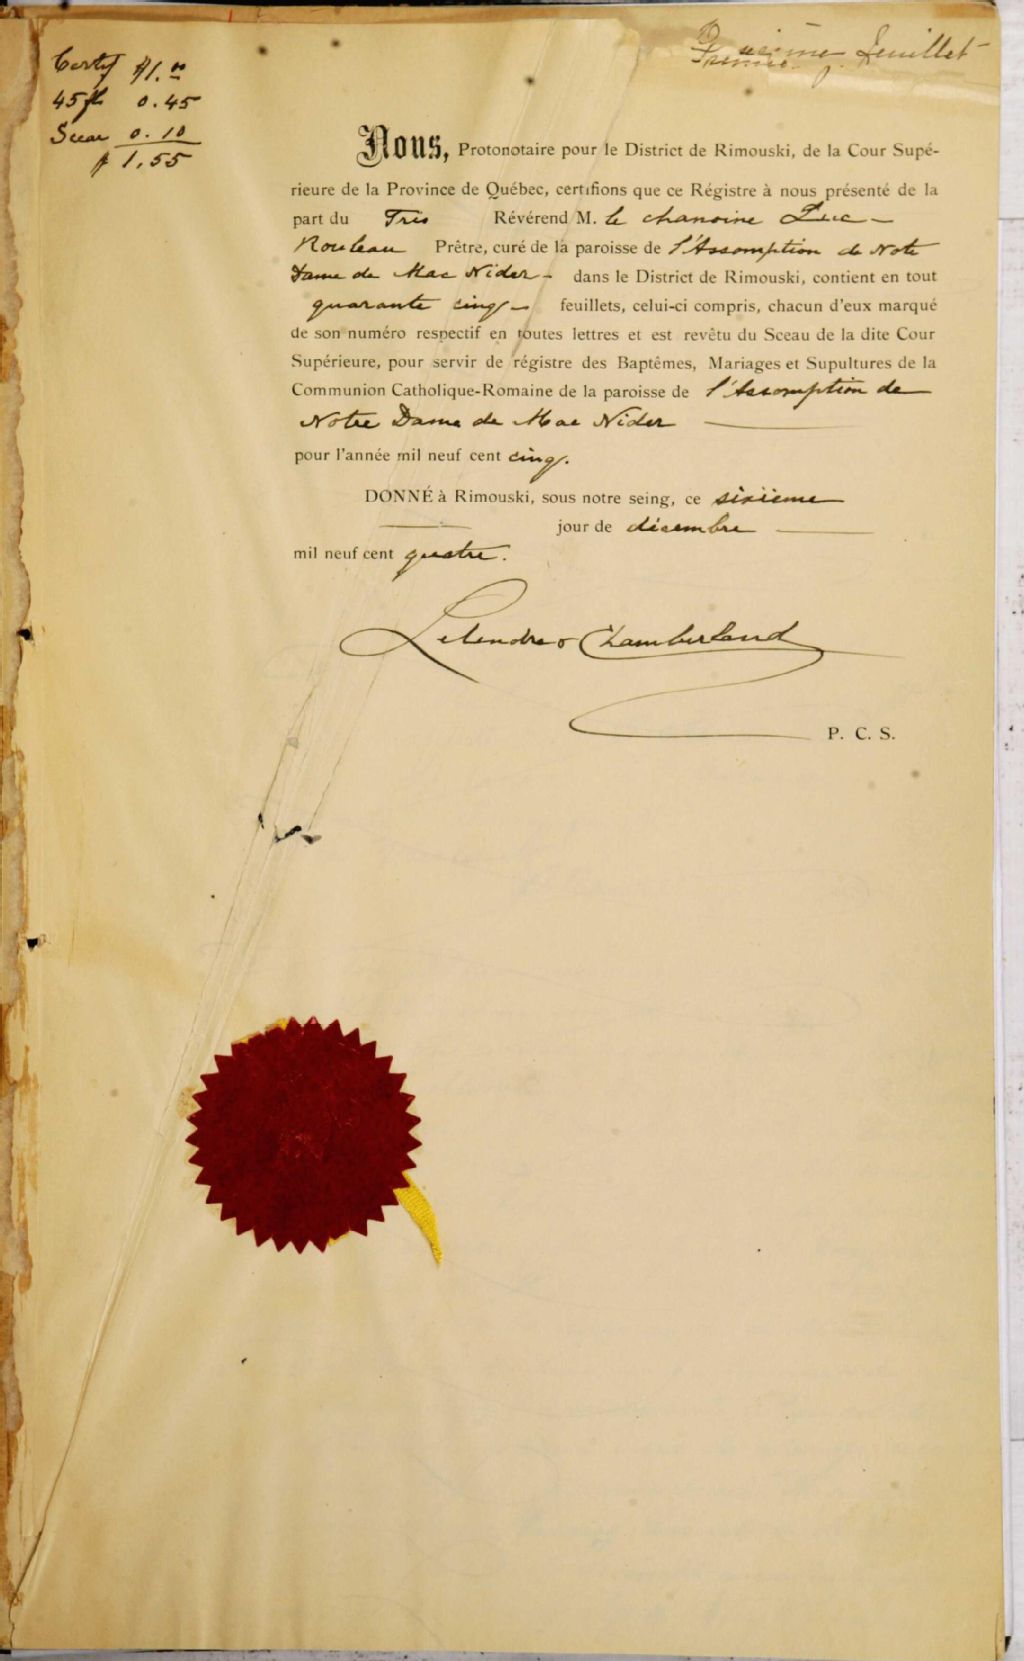 Certif $1.00
45 fts 0.45
Sceau 0.10
$ 1.55
feuillet
Nous, Protonotaire pour le District de Rimouski, de la Cour Supé-
rieure de la Province de Québec, certifions que ce Régistre à nous présenté de la
part du Très Révérend M. le chanoine Luc
Rouleau Prêtre, curé de la paroisse de l'Assomption de Notre
Dame de Mac Nider - dans le District de Rimouski, contient en tout
quarante cinq - feuillets, celui-ci compris, chacun d'eux marqué
de son numéro respectif en toutes lettres et est revêtu du Sceau de la dite Cour
Supérieure, pour servir de régistre des Baptêmes, Mariages et Supultures de la
Communion Catholique-Romaine de la paroisse de l'Assomption de
Notre Dame de Mac Nider
pour l'année mil neuf cent cinq.
DONNÉ à Rimouski, sous notre seing, ce sixième
jour de décembre
mil neuf cent quatre.
Letendre & Chamberland
P. C. S.